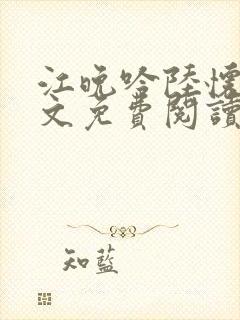 江晚吟陸懷
文免費閱讀
知藍